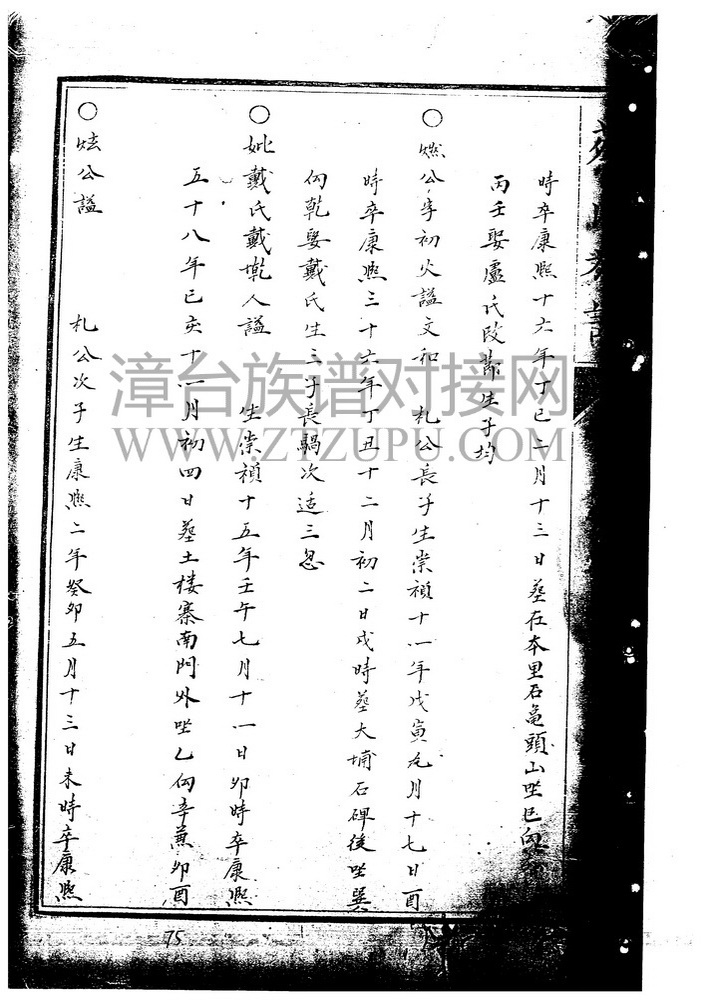 時卒康熙十六年丁巳二月十三日葬在本里石龜頭山坐巳向
丙壬娶盧氏改節生子均
○燃公字初火謚文和 札公長子生崇禎十一年戊寅九月十七日酉
時卒康熙三十六年丁丑十二月初二日戌時葬大埔石碑後坐巽
向乾娶戴氏生三子長騧次适三忽
○妣戴氏戴人謚 生崇禎十五年壬午七月十一日卯時卒康熙
五十八年己亥十一月初四日葬土楼寨南門外坐乙向辛兼卯酉
○炫公謚 札公次子生康熙二年癸卯五月十三日未時卒康熙
75
漳台族谱对接网
WWW.ZTZUPU.COM